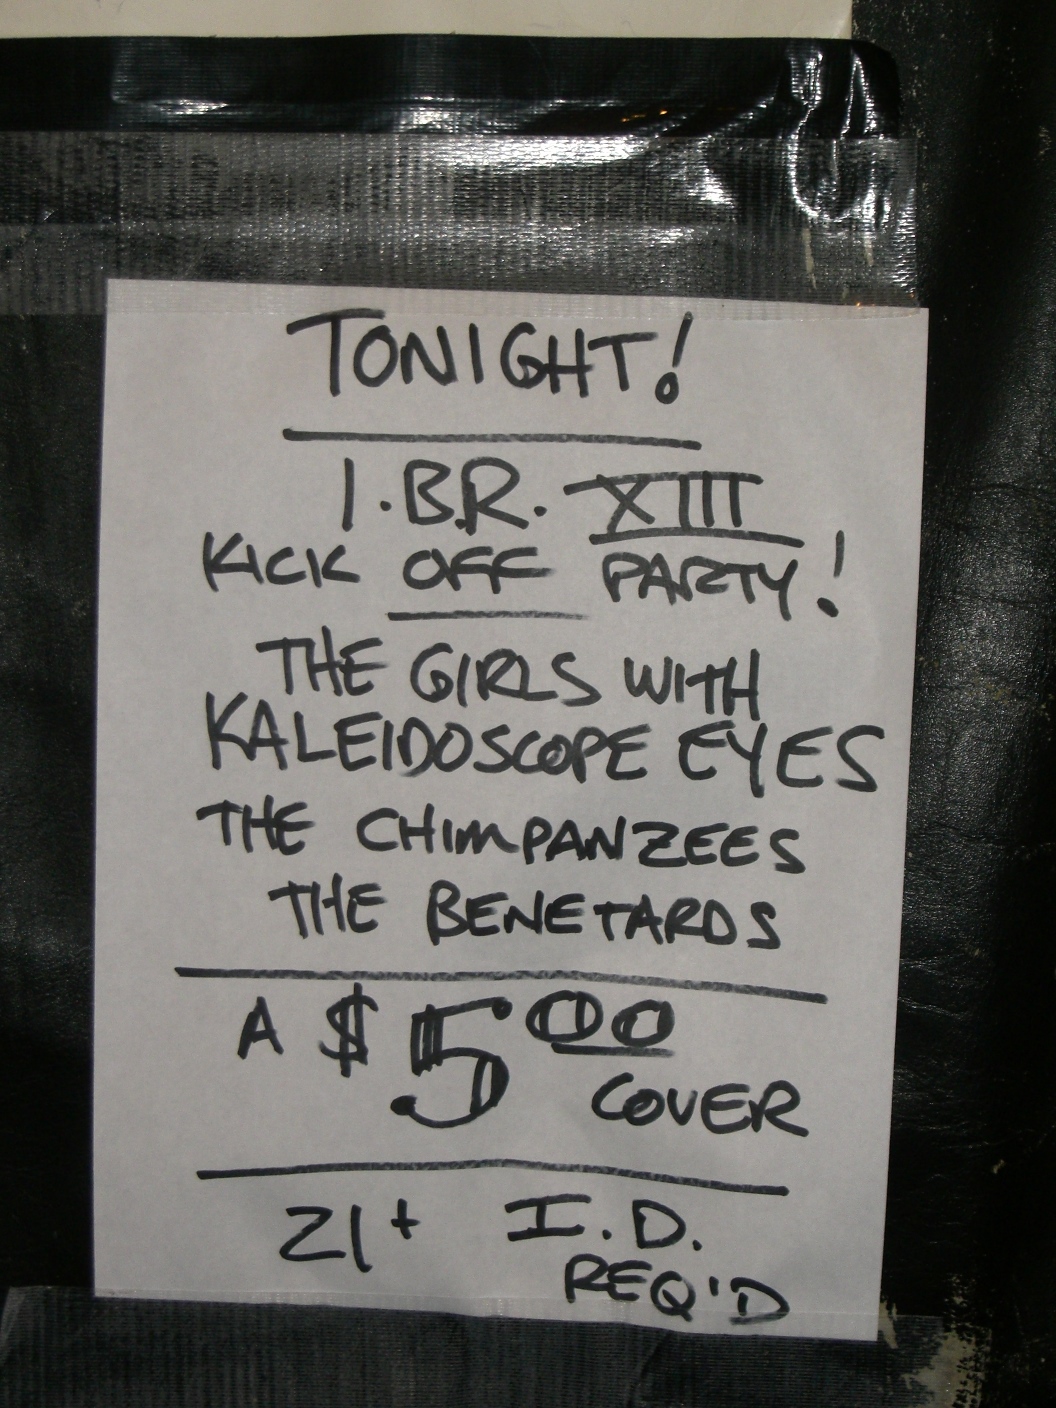 TONIGHT!
I.B.R. XIII
KICK OFF PARTY!
THE GIRLS WITH
KALEIDOSCOPE EYES
THE CHIMPANZEES
THE BENETARDS
A $5.00
COVER
21+ I.D.
REQ'D